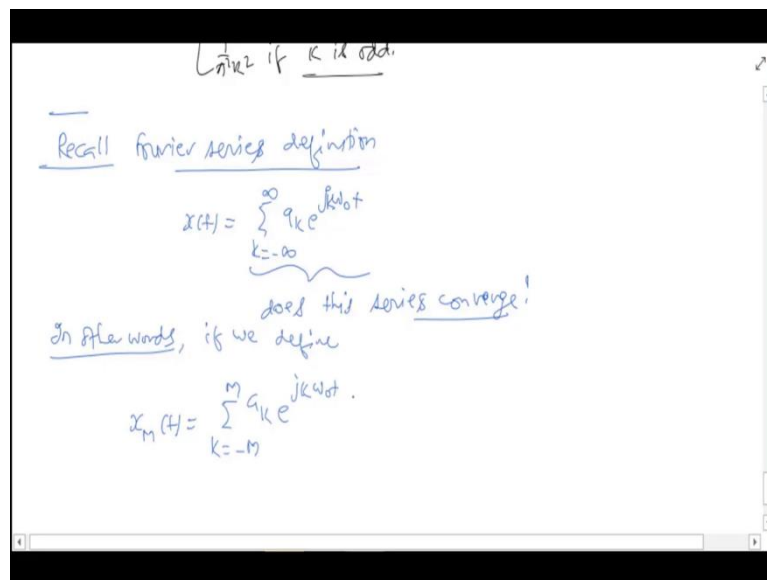 1/π²k² if k is odd.
Recall Fourier series definition
x(t) = ∑_{k=-∞}^{∞} a_k e^{jkω₀t}
does this series converge!
In other words, if we define
x_M(t) = ∑_{k=-M}^{M} a_k e^{jkω₀t}.